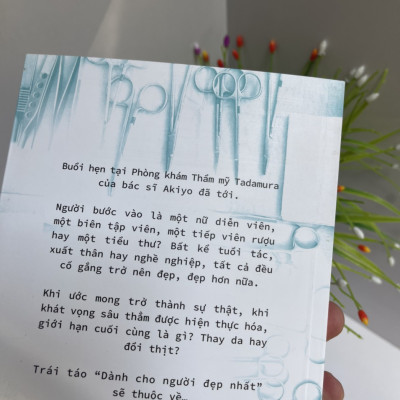 Buổi hẹn tại Phòng khám Thẩm mỹ Tadamura
của bác sĩ Akiyo đã tới.
Người bước vào là một nữ diễn viên,
một biên tập viên, một tiếp viên rượu
hay một tiểu thư? Bất kể tuổi tác,
xuất thân hay nghề nghiệp, tất cả đều
cố gắng trở nên đẹp, đẹp hơn nữa.
Khi ước mong trở thành sự thật, khi
khát vọng sâu thẳm được hiện thực hóa,
giới hạn cuối cùng là gì? Thay da hay
đổi thịt?
Trái táo “Dành cho người đẹp nhất”
sẽ thuộc về…